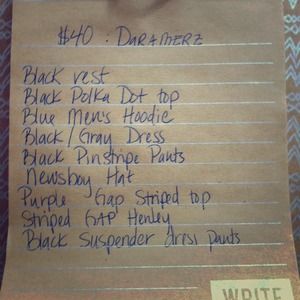 $40 : DARAMERZ
Black vest
Black Polka Dot top
Blue Men's Hoodie
Black/Gray Dress
Black Pinstripe Pants
Newsboy Hat
Purple Gap Striped top
Striped GAP Henley
Black Suspender dress pants
WRITE